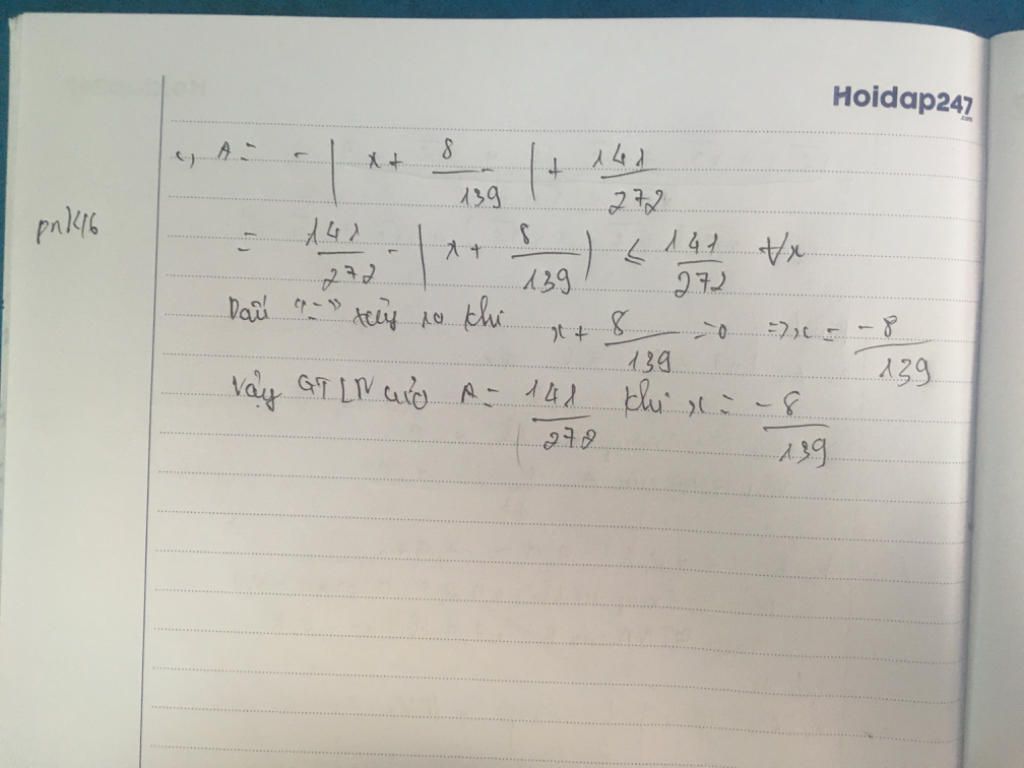 Hoidap247
.com
c, A = - | x + 8/139 | + 141/272
pnk16
= 141/272 - | x + 8/139 | ≤ 141/272 ∀x
Dấu "=" xảy ra khi x + 8/139 = 0 => x = -8/139
Vậy GTLN của A = 141/272 khi x = -8/139